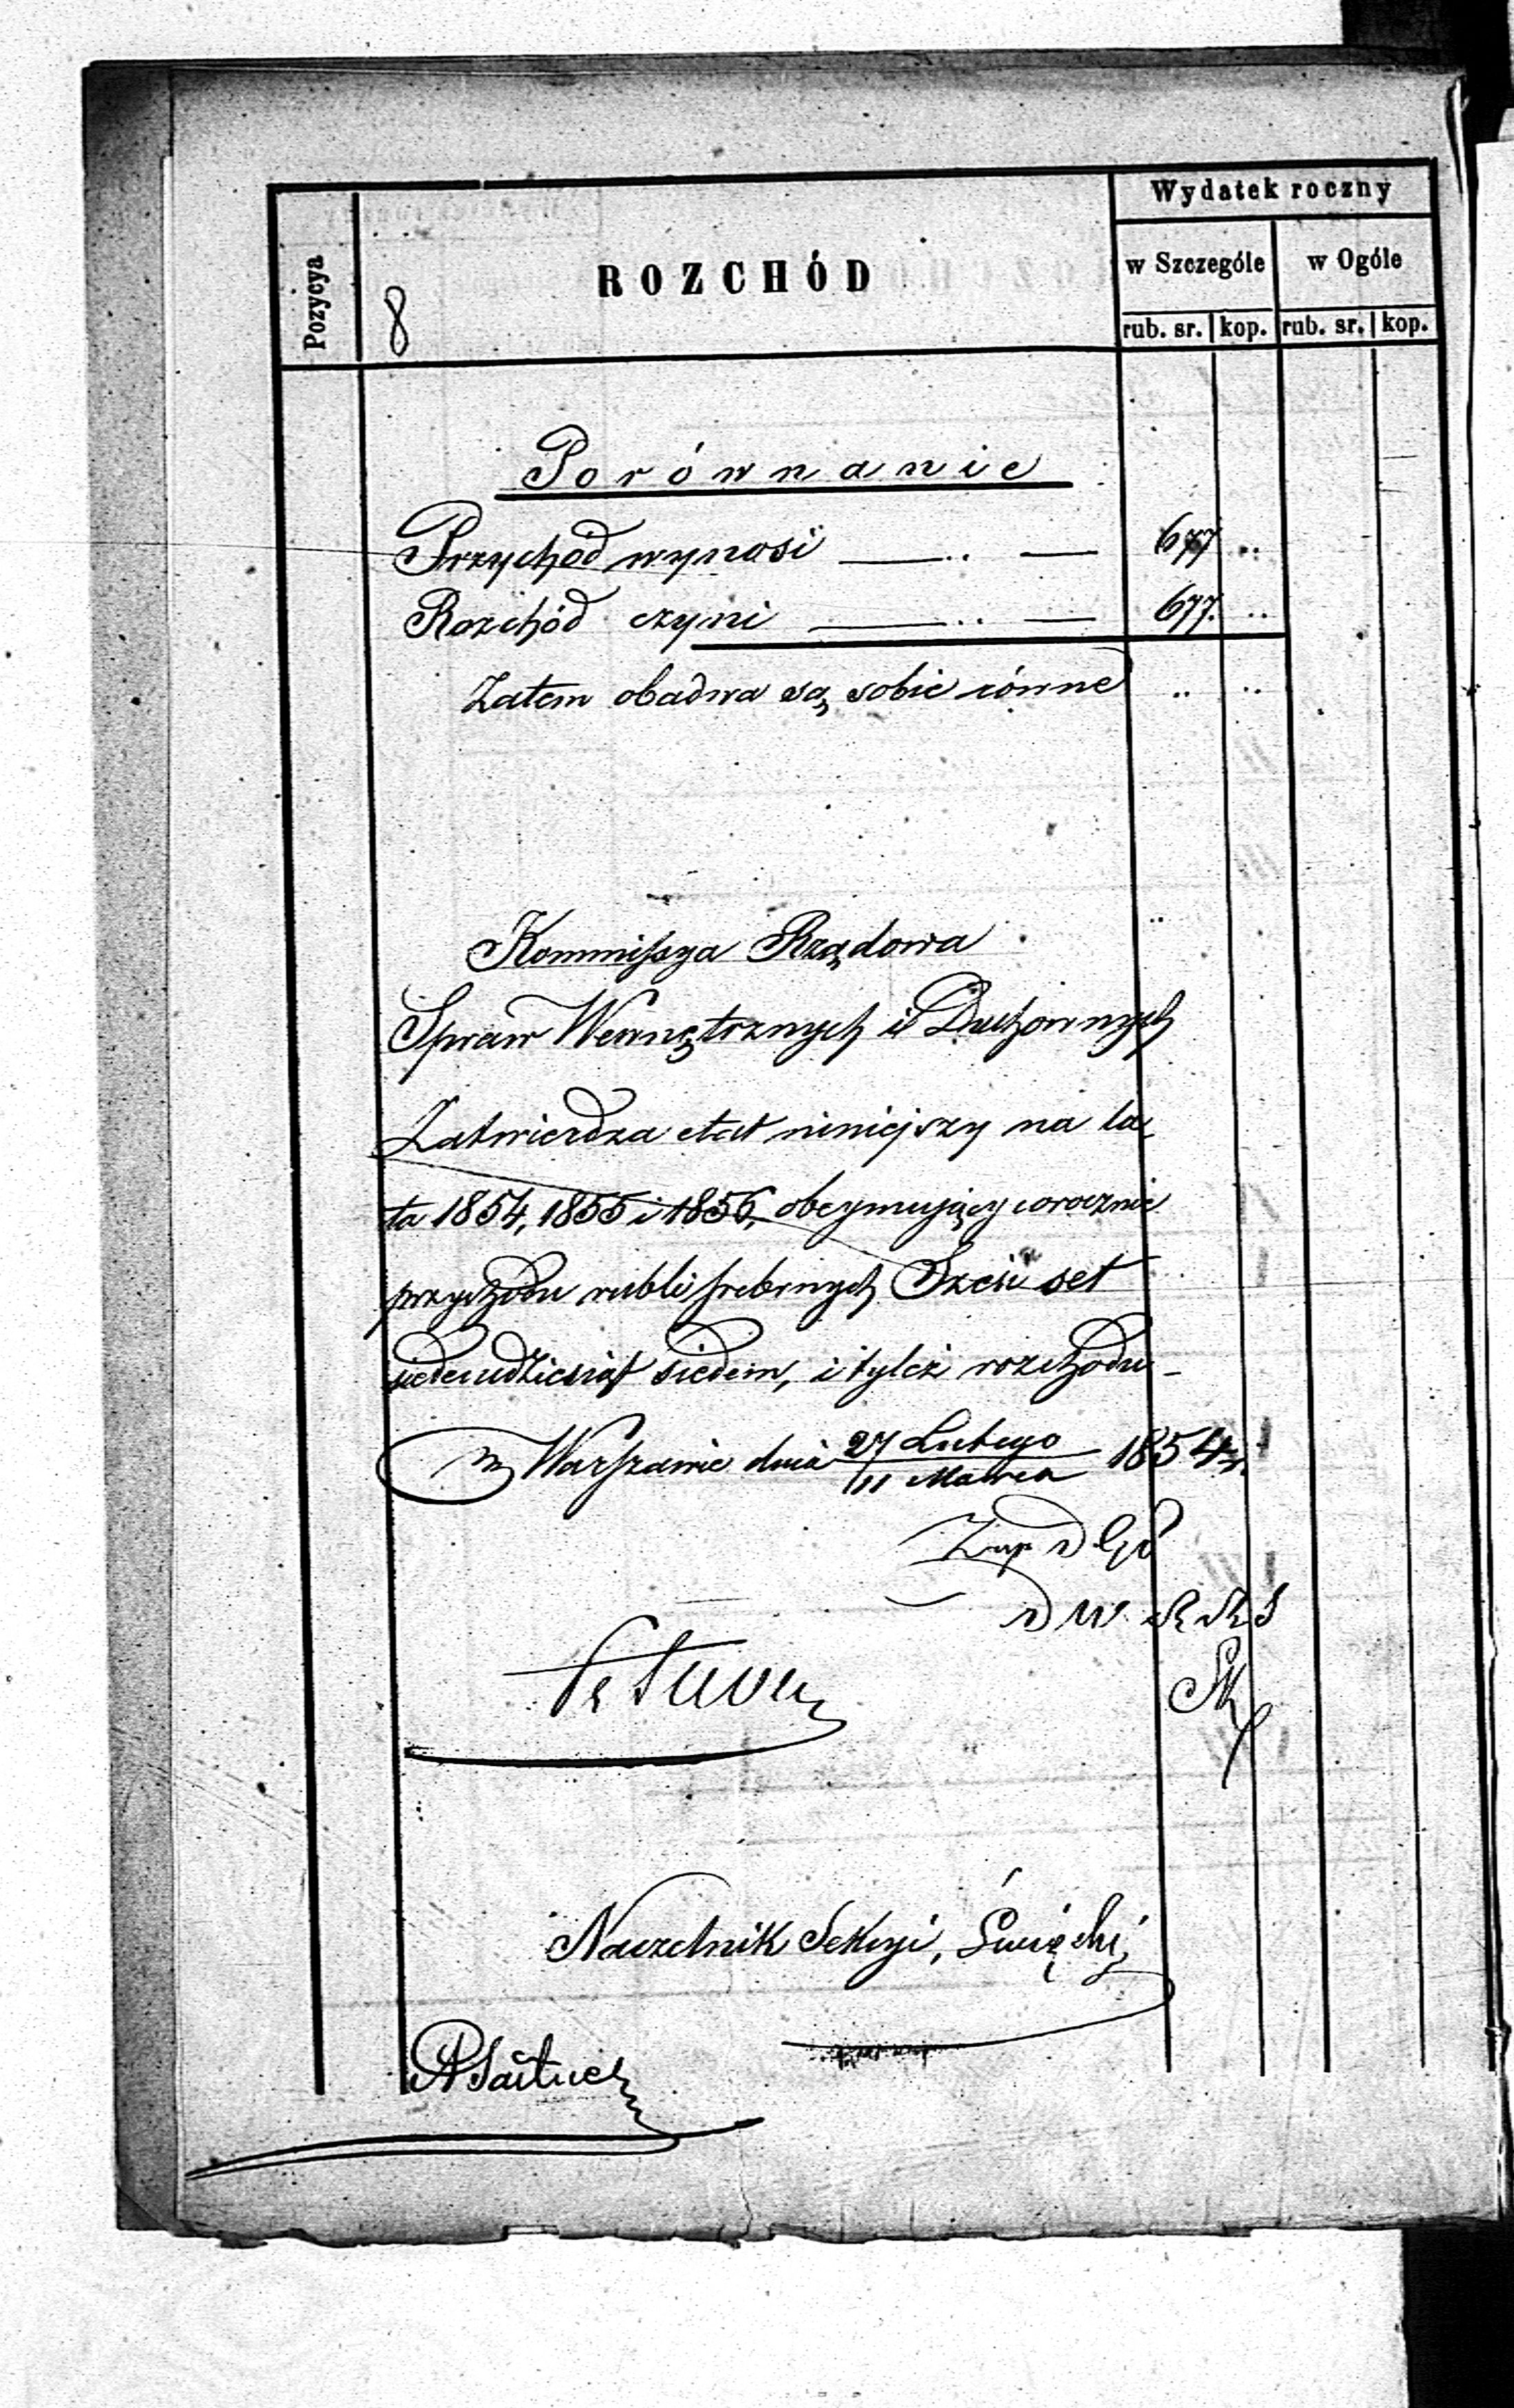 Wydatek roczny
Pozycya
8
ROZCHÓD
w Szczególe
w Ogóle
rub. sr. kop. rub. sr. kop.
Porównanie
Przychód wynosi — .. — 677 ..
Rozchód czyni — .. — 677. ..
Zatem obadwa są sobie równe .. ..
Kommissya Rządowa
Spraw Wewnętrznych i Duchownych
Zatwierdza etat niniejszy na la„
ta 1854, 1855 i 1856, obeymujący corocznie
przychodu rubli srebrnych Sześć set
siedemdziesiąt siedem, i tyleż rozchodu -
w Warszawie dnia 27 Lutego / 11 Marca 1854 r.
Naczelnik Sekcyi, Święcki